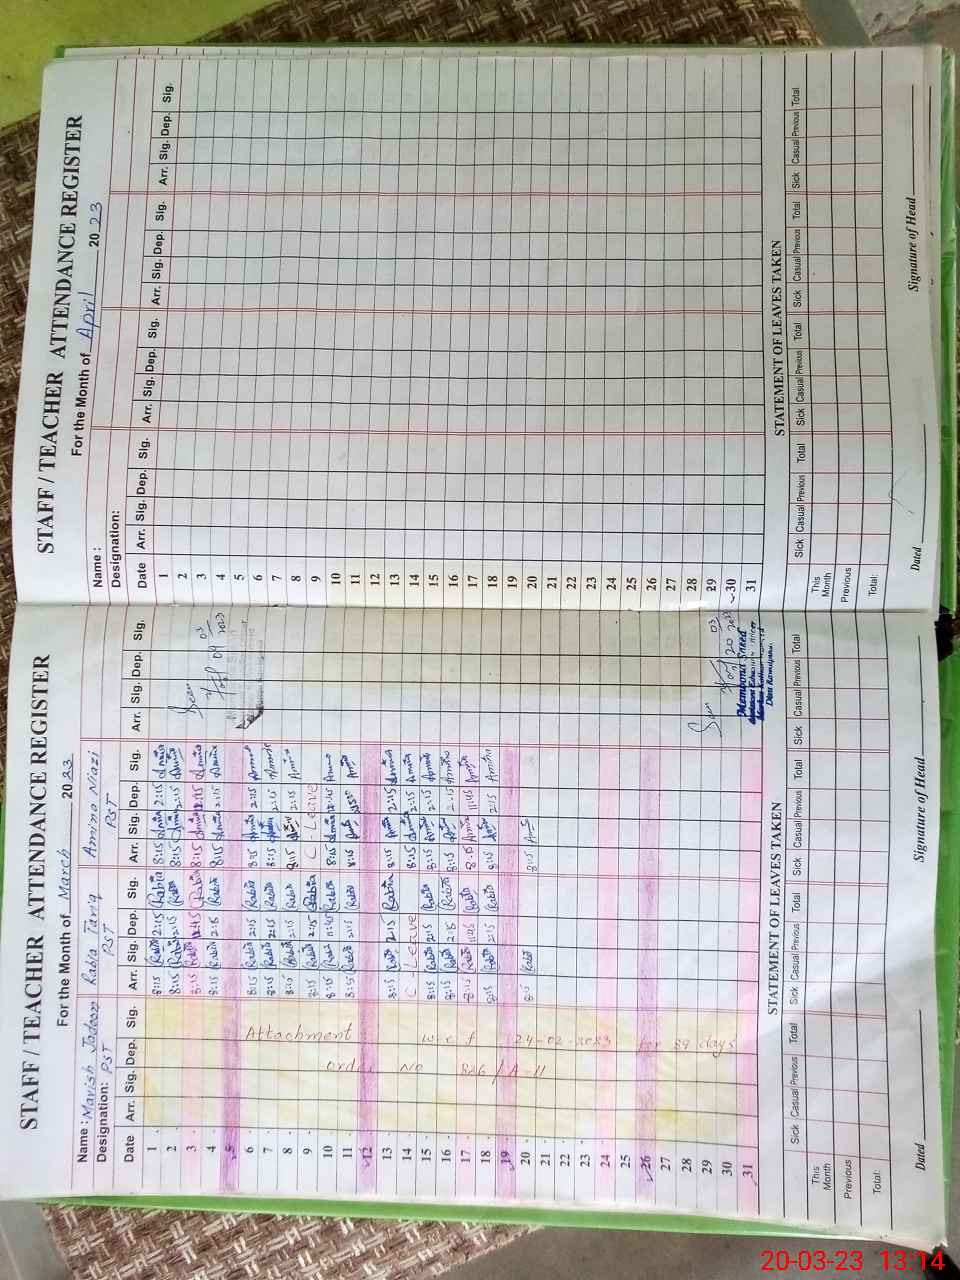 STAFF / TEACHER ATTENDANCE REGISTER
For the Month of March 2023
Name : Mavish Jadoon Rabia Tariq Amina Niazi
Designation: PST PST PST
Date Arr. Sig. Dep. Sig. Arr. Sig. Dep. Sig. Arr. Sig. Dep. Sig. Arr. Sig. Dep. Sig.
1 8:15 Rabia 2:15 Rabia 8:15 Amina 2:15 Amina
2 8:15 Rabia 2:15 Rabia 8:15 Amina 2:15 Amina
3 8:15 Rabia 12:45 Rabia 8:15 Amina 12:15 Amina
4 8:15 Rabia 2:15 Rabia 8:15 Amina 2:15 Amina
5
6 8:15 Rabia 2:15 Rabia 8:15 Amina 2:15 Amina
7 8:15 Rabia 2:15 Rabia 8:15 Amina 2:15 Amina
8 8:15 Rabia 2:15 Rabia 8:15 Amina 2:15 Amina
9 8:15 Rabia 2:15 Rabia C. Leave
10 8:15 Rabia 11:45 Rabia 8:15 Amina 12:45 Amina
11 8:15 Rabia 2:15 Rabia 8:15 Amina Amina
12
13 8:15 Rabia 2:15 Rabia 8:15 Amina 2:15 Amina
14 C Leave 8:15 Amina 2:15 Amina
15 8:15 Rabia 2:15 Rabia 8:15 Amina 2:15 Amina
16 8:15 Rabia 2:15 Rabia 8:15 Amina 2:15 Amina
17 8:15 Rabia 11:45 Rabia 8:15 Amina 11:45 Amina
18 8:15 Rabia 2:15 Rabia 8:15 Amina 2:15 Amina
19
20 8:15 Rabia 8:15 Amina
21
22
23
24
25
26
27
28
29
30
31
Attachment w.e.f 24-02-2023 for 89 days
order No 826 / A-11
Seen
04 03 2023
Seen
20 03
STATEMENT OF LEAVES TAKEN
Sick Casual Previous Total Sick Casual Previous Total Sick Casual Previous Total Sick Casual Previous Total
This Month
Previous
Total:
Dated Signature of Head
STAFF / TEACHER ATTENDANCE REGISTER
For the Month of April 2023
Name :
Designation:
Date Arr. Sig. Dep. Sig. Arr. Sig. Dep. Sig. Arr. Sig. Dep. Sig. Arr. Sig. Dep. Sig.
1
2
3
4
5
6
7
8
9
10
11
12
13
14
15
16
17
18
19
20
21
22
23
24
25
26
27
28
29
30
31
STATEMENT OF LEAVES TAKEN
Sick Casual Previous Total Sick Casual Previous Total Sick Casual Previous Total Sick Casual Previous Total
This Month
Previous
Total:
Dated Signature of Head
20-03-23 13:14